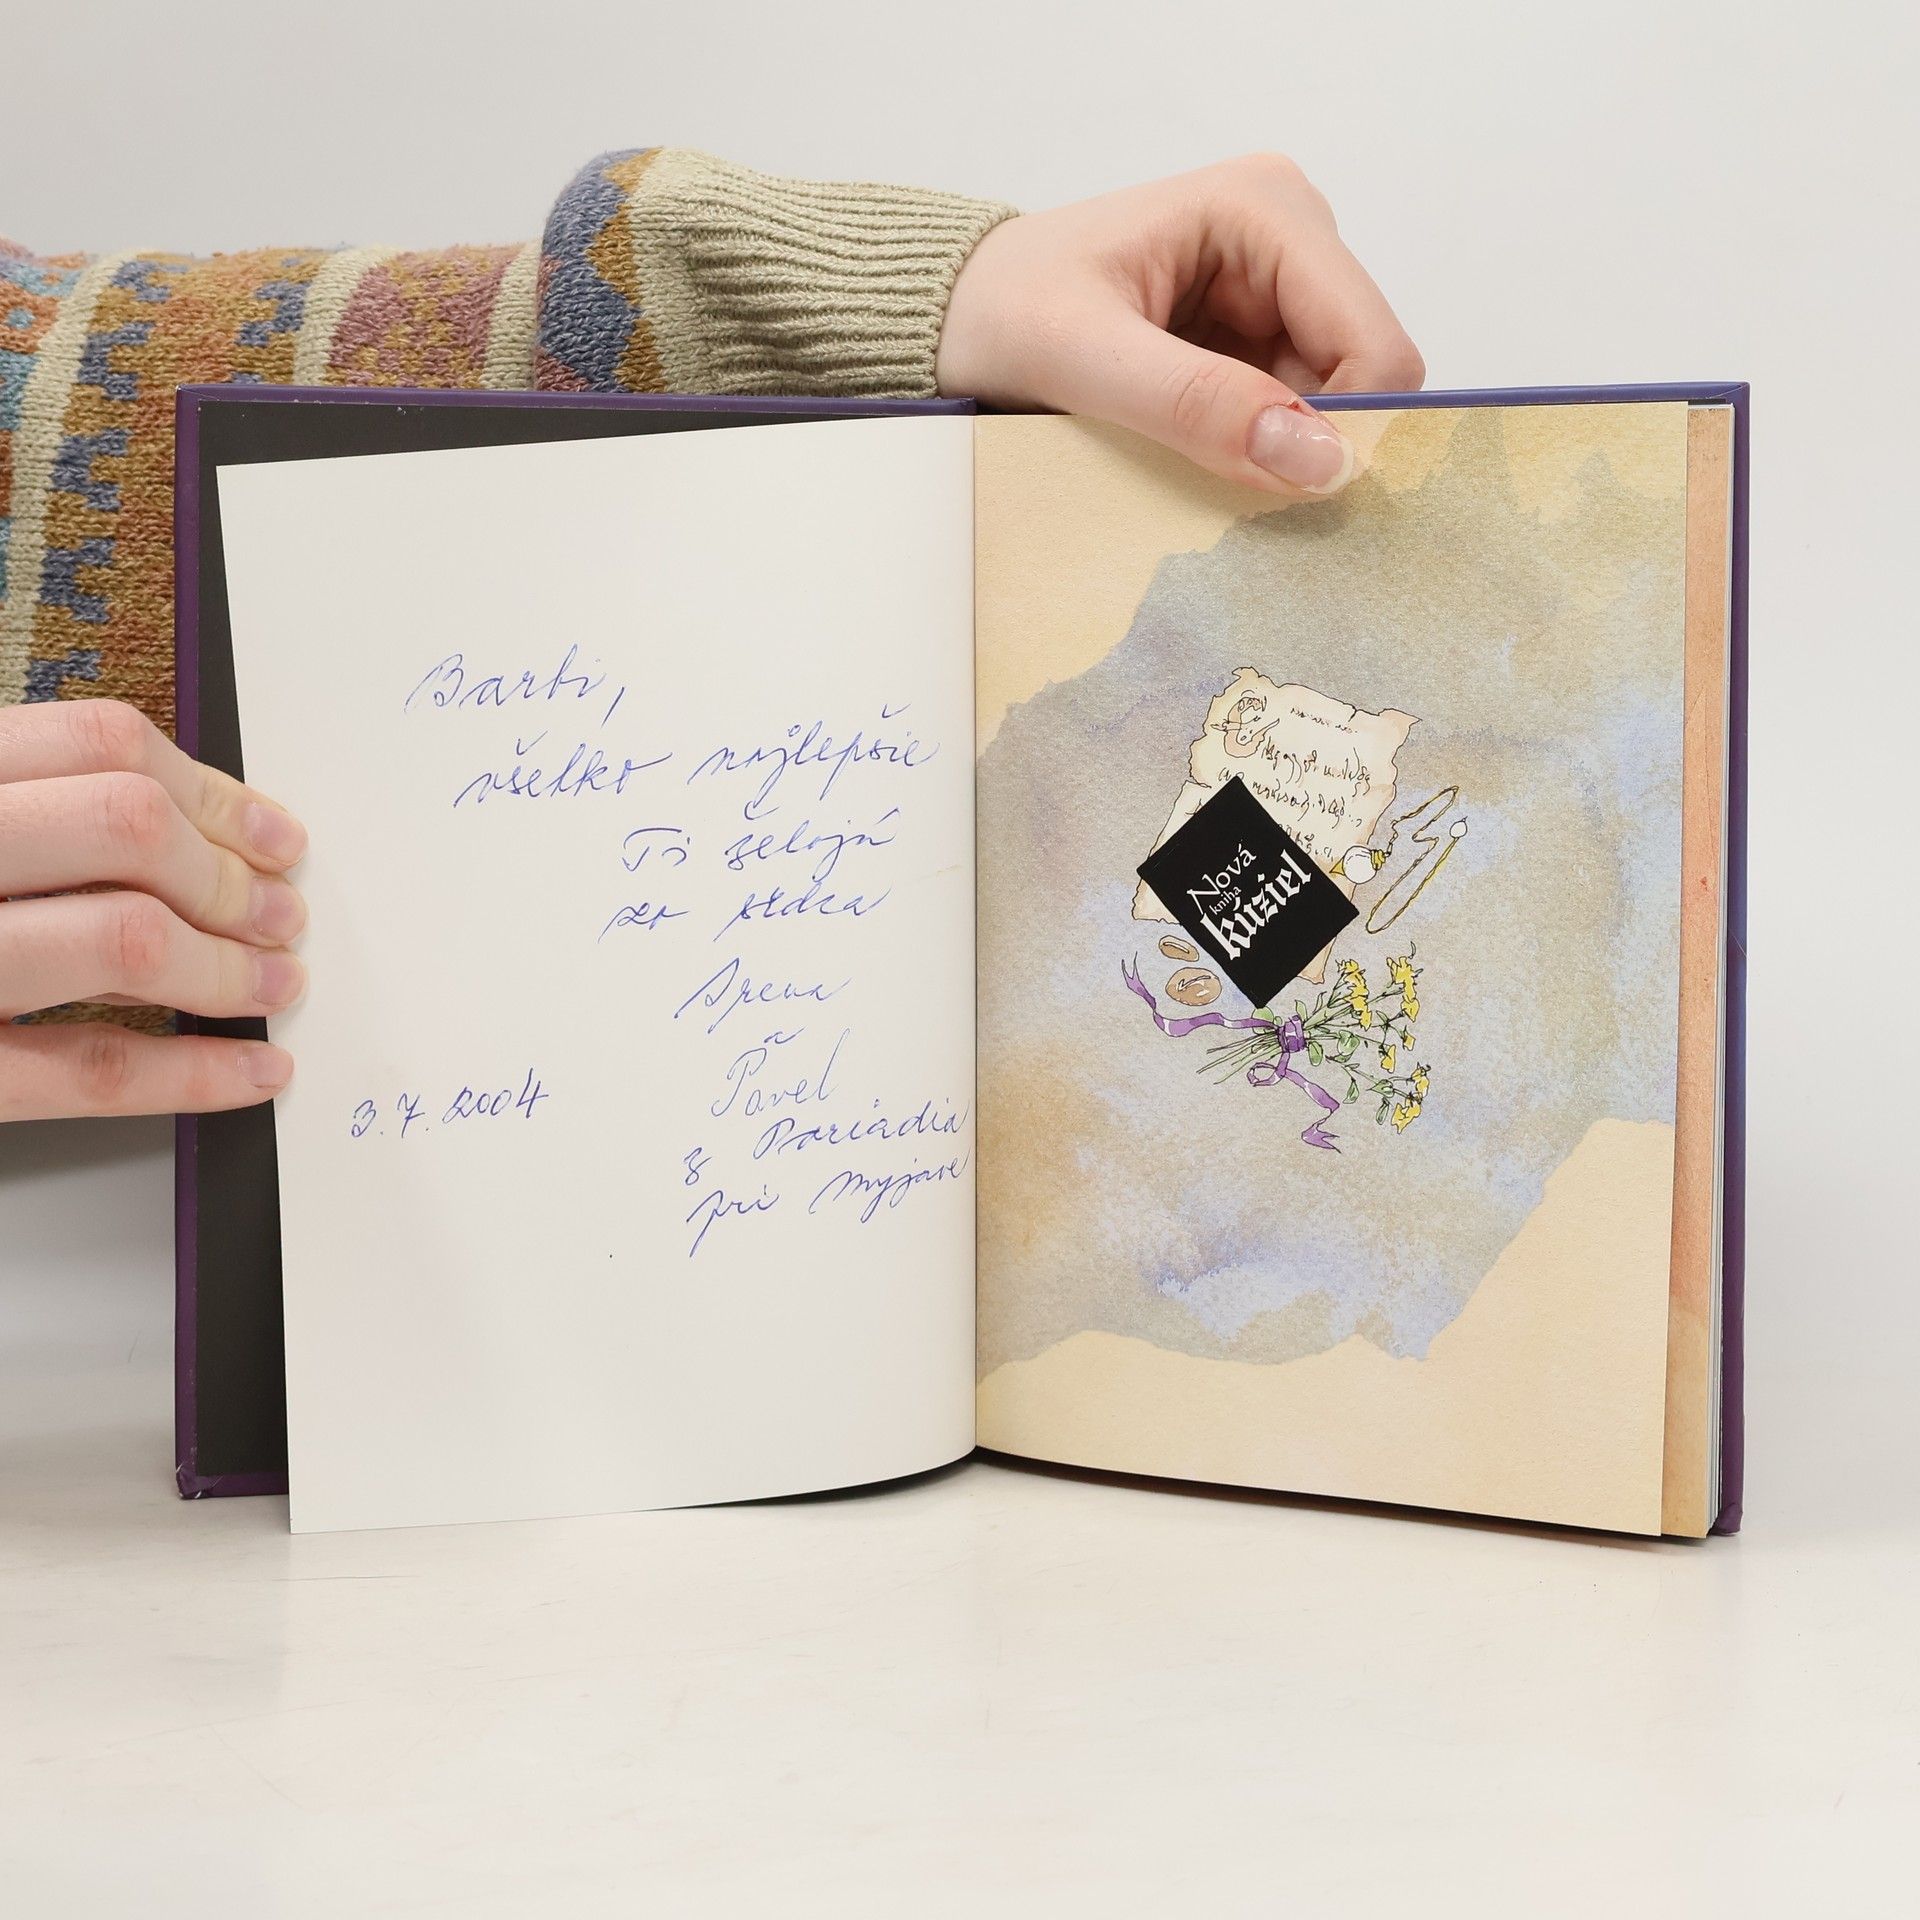 Barbi,
všetko najlepšie
Ti želajú
zo srdca
Irena
a
Pavel
z Poriadia
pri Myjave
3.7.2004
Nová
kniha
kúziel